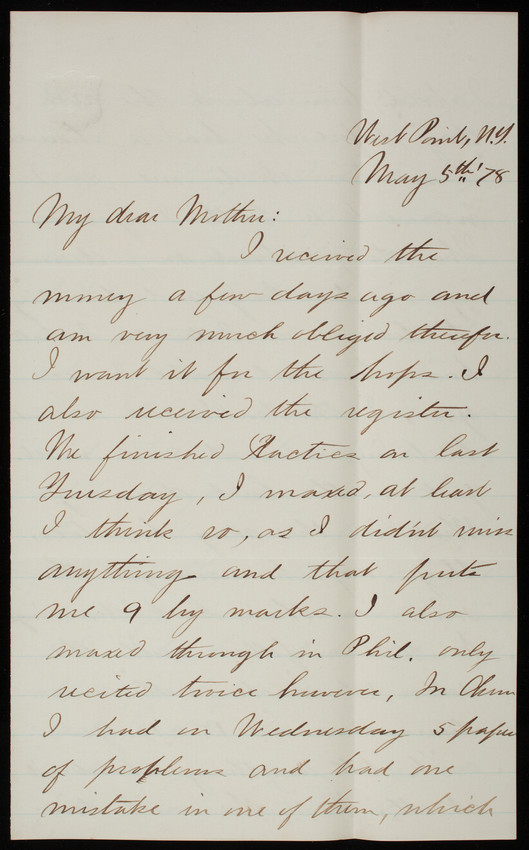 West Point, N.Y.
May 5th '78
My dear Mother:
I received the
money a few days ago and
am very much obliged therefor.
I want it for the hops. I
also received the register.
We finished Tactics on last
Tuesday, I maxed, at least
I think so, as I didn't miss
anything and that puts
me 9 by marks. I also
maxed through in Phil. only
recited twice however, In Chem
I had on Wednesday 5 papers
of problems and had one
mistake in one of them, which